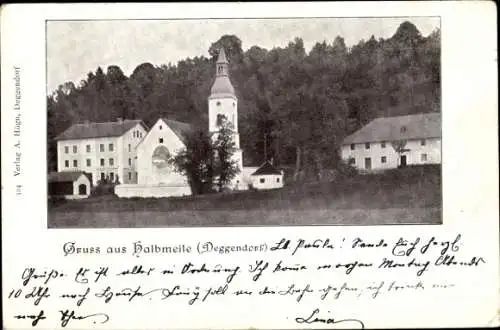 104 Verlag A. Högn, Deggendorf
Gruss aus Halbmeile (Deggendorf) Lb. Paula! Sende Euch herzl.
Grüße. Es ist alles in Ordnung. Ich komme morgen Montag Abends
10 Uhr nach Hause, Franz soll an die Bahn gehen, ich trinke
noch Thee,
Lina